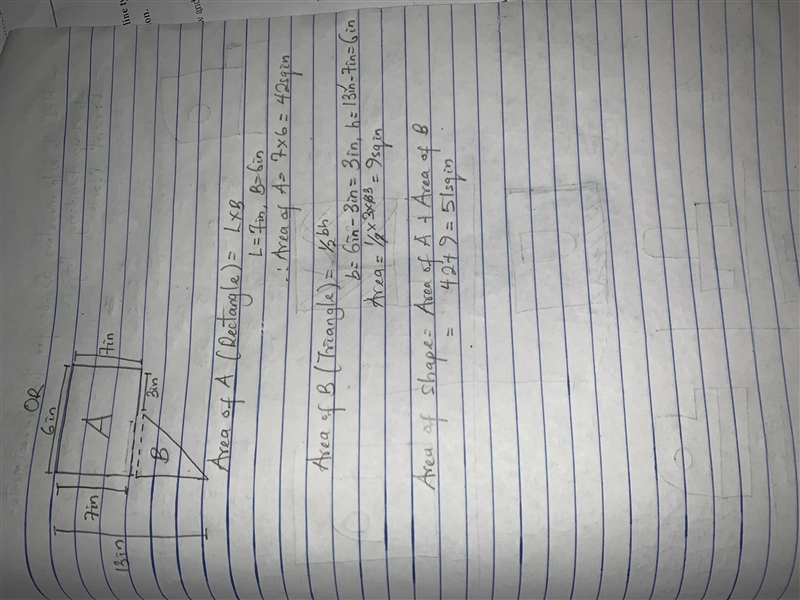 OR
6in
A
7in
7in
13in
3in
B
Area of A (Rectangle) = L×B
L=7in, B=6in
∴ Area of A = 7×6 = 42sqin
Area of B (Triangle) = ½bh
b = 6in - 3in = 3in, h = 13in - 7in = 6in
Area = ½ × 3 × = 9sqin
Area of Shape = Area of A + Area of B
= 42 + 9 = 51sqin
line
on.